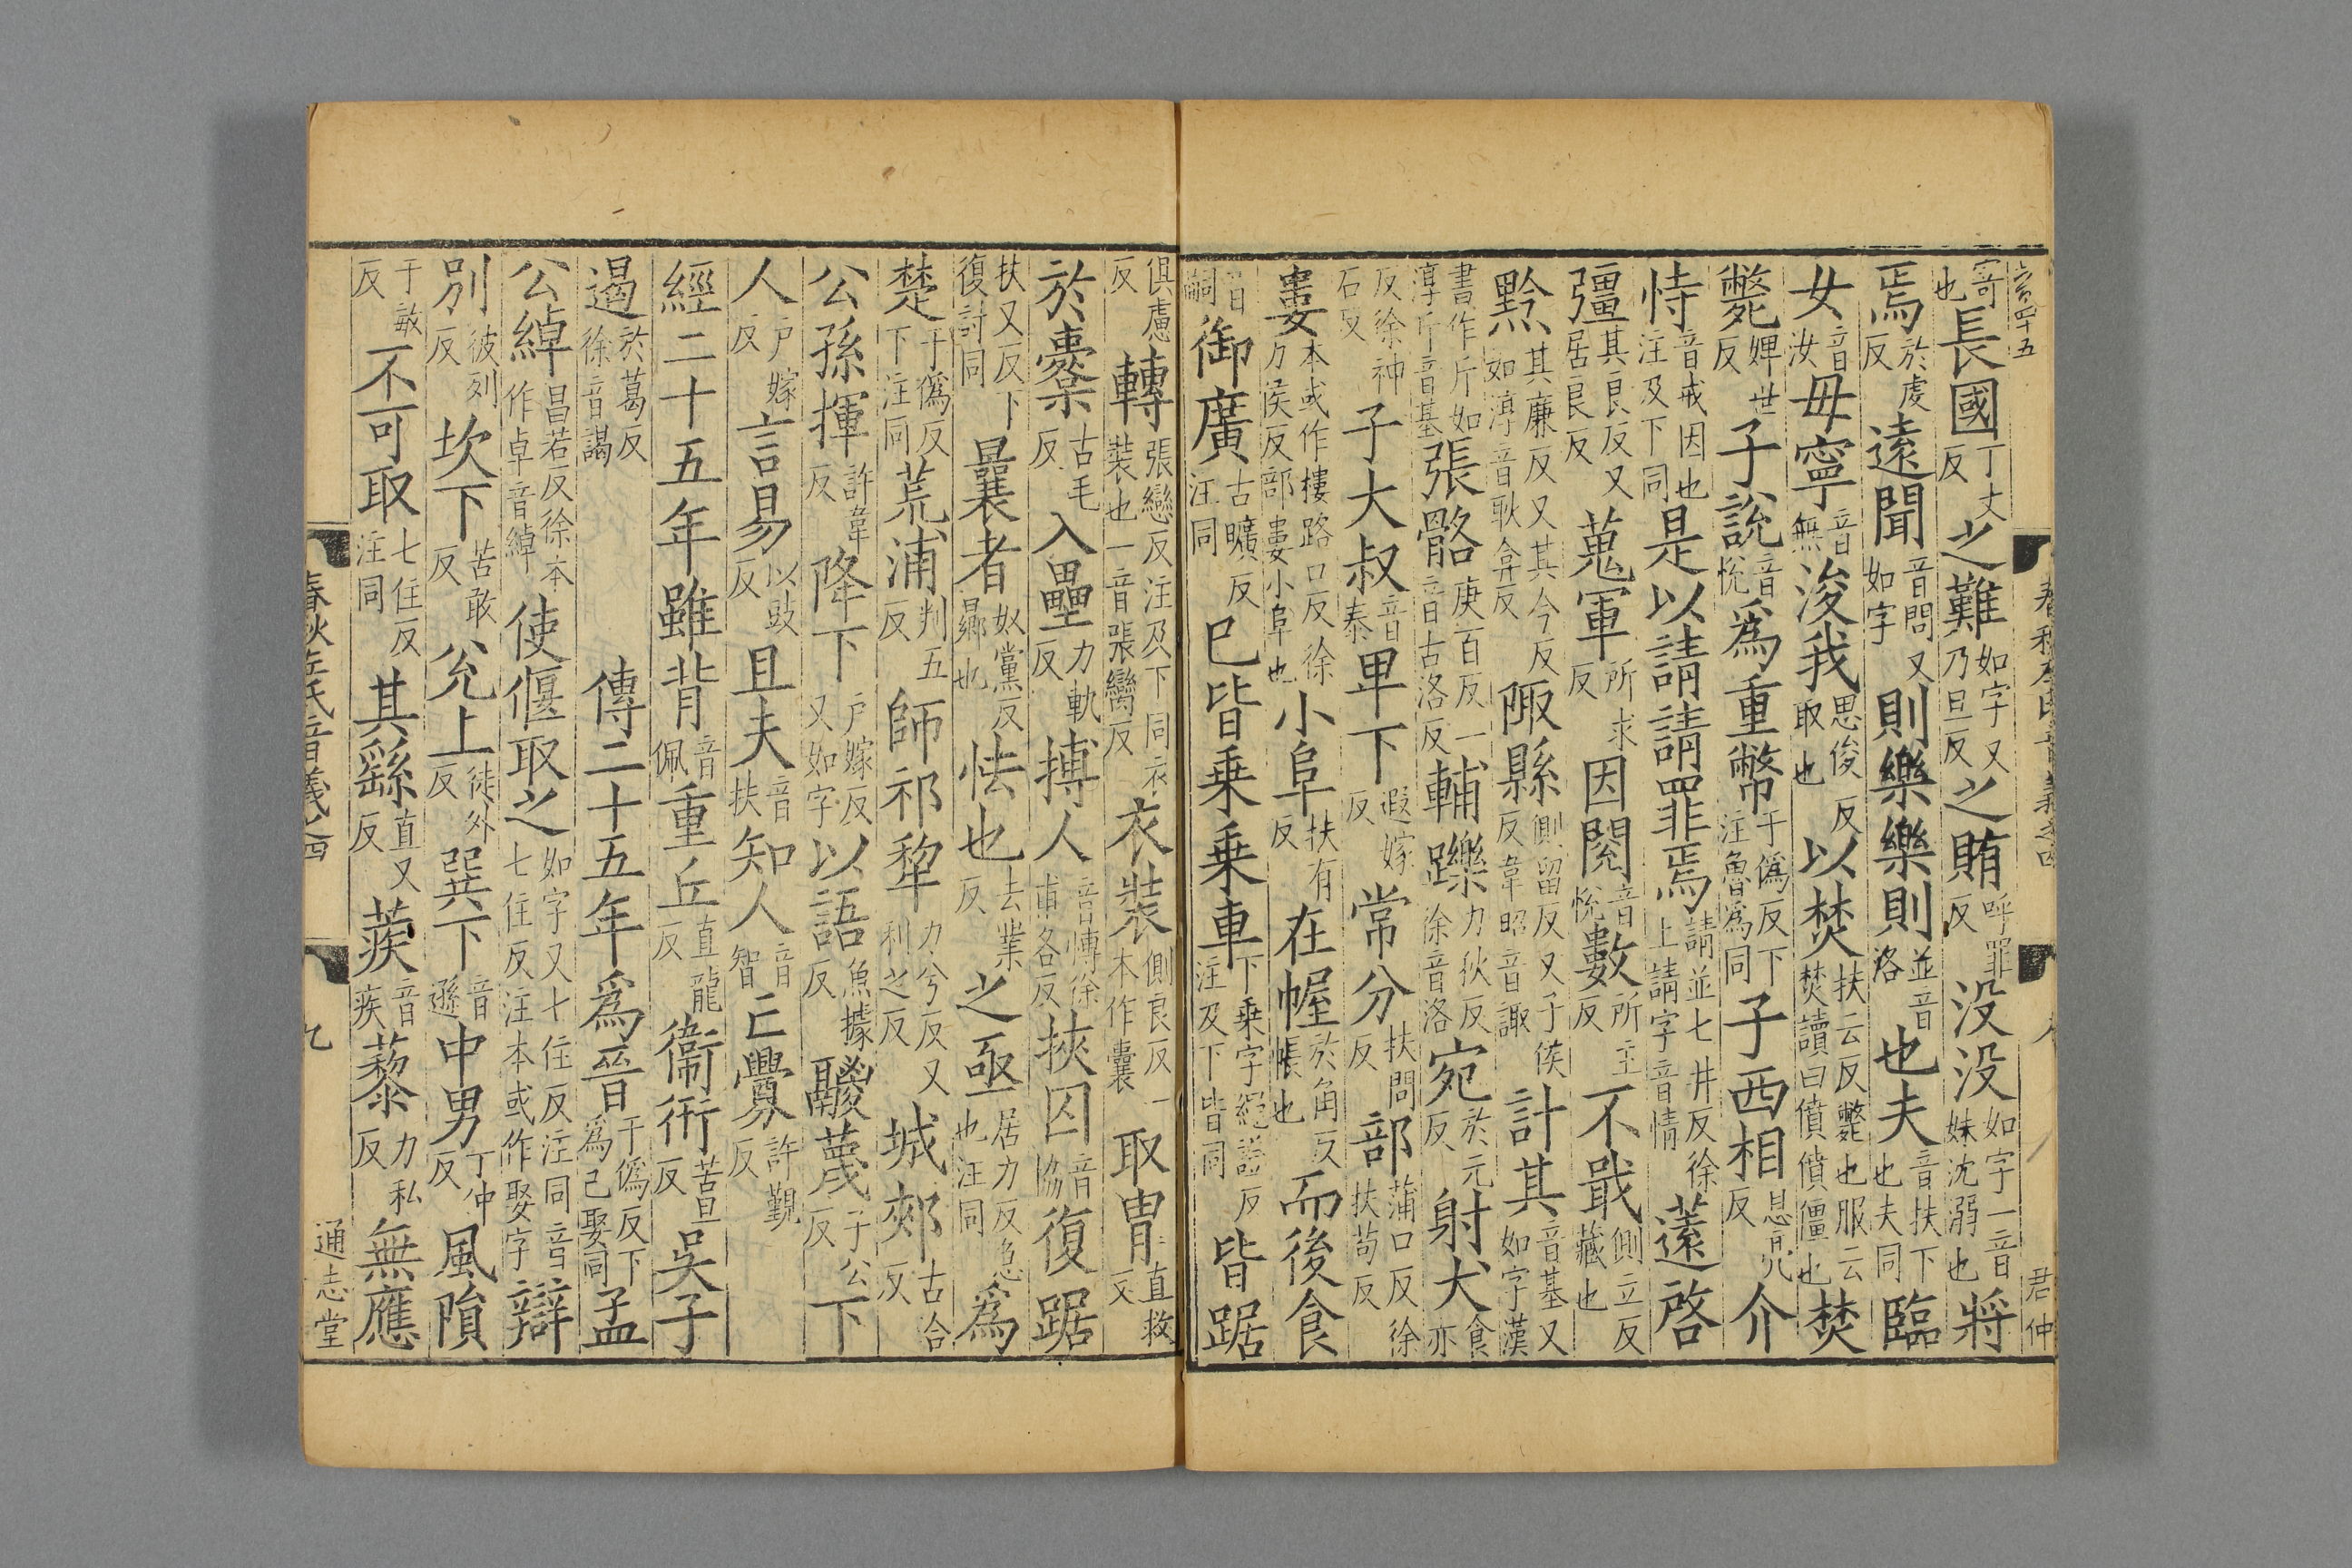 寄也長國丁丈反之難如字又乃旦反之賄呼罪反没没如字一音妹沈溺也將
焉於虔反遠聞音問又如字則樂樂則並音洛也夫音扶下也夫同臨
女音汝毋寧音無浚我思俊反取也以焚扶云反斃也服云焚讀曰僨僨僵也焚
斃婢世反子説音悅爲重幣于僞反下注魯爲同子西相息亮反介
恃音戒因也注及下同是以請請罪焉請並七井反徐上請字音情薳啓
彊其良反又居良反蒐軍所求反因閱音悅數所主反不戢側立反藏也
黔其廉反又其今反如淳音耿弇反陬縣側留反又子侯反韋昭音諏計其音基又如字漢
書作斤如淳斤音基張骼庚百反一音古洛反輔躒力狄反徐音洛宛於元反射犬食亦
反徐神石反子大叔音泰卑下遐嫁反常分扶問反部蒲口反徐扶苟反
婁本或作樓路口反徐力侯反部婁小阜也小阜扶有反在幄於角反帳也而後食
音嗣御廣古曠反注同已皆乗乗車下乗字繩證反注及下皆同皆踞
俱慮反轉張戀反注及下同衣裝也一音張臠反衣裝側良反一本作囊取冑直救反
於櫜古毛反入壘力軌反搏人音博徐甫各反挾囚音協復踞
扶又反下復討同曩者奴黨反曏也怯也去業反之亟居力反急也注同爲
楚于僞反下注同荒浦判五反師祁犂力兮反又利之反城郟古洽反
公孫揮許韋反降下戶嫁反又如字以語魚據反鬷蔑子公反下
人戶嫁反言易以豉反且夫音扶知人音智亡釁許覲反
經二十五年雖背音佩重丘直龍反衞衎苦旦反吴子
遏於葛反徐音謁傳二十五年爲晉于僞反下爲己娶同孟
公綽昌若反徐本作卓音綽使偃取之如字又七住反注同音七住反注本或作娶字辯
別彼列反坎下苦敢反兊上徒外反巽下音遜中男丁仲反風隕
于敏反不可取七住反注同其繇直又反蒺音疾藜力私反無應
春秋左氏音義之四
九
通志堂
君仲